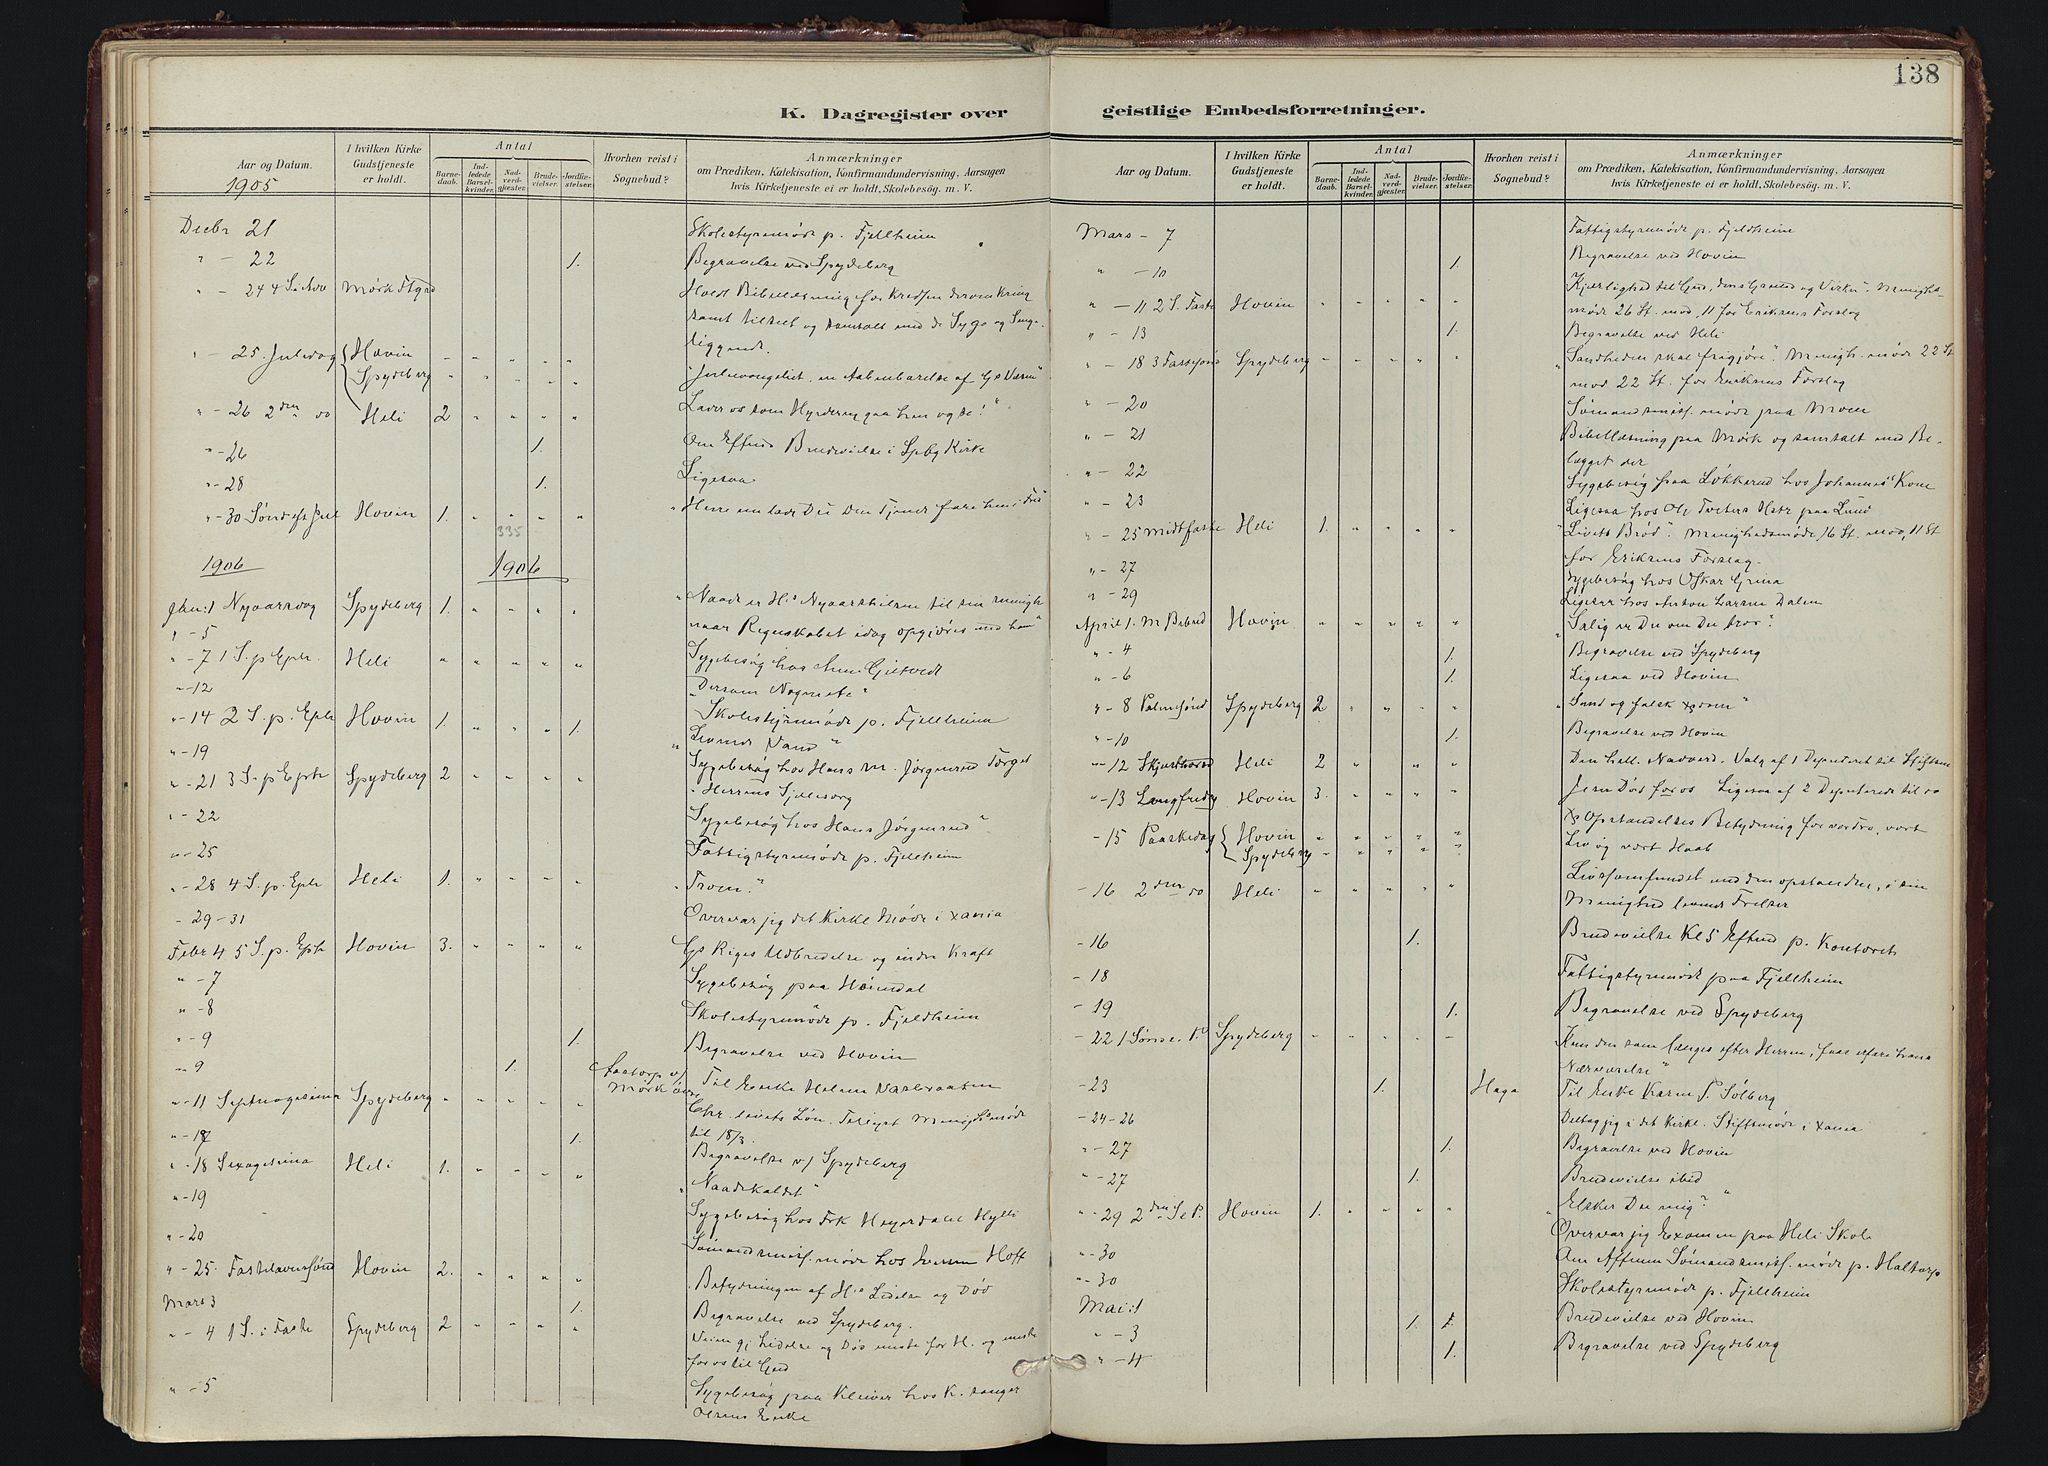 138
K. Dagregister over
Aar og Datum.
I hvilken Kirke Gudstjeneste er holdt.
Antal
Barnedaab.
Indledede Barselkvinder.
Nadverdgjester.
Brudevielser.
Jordfæstelser.
Hvorhen reist i Sognebud?
Anmærkninger
om Prædiken, Katekisation, Konfirmandundervisning, Aarsagen
hvis Kirketjeneste ei er holdt, Skolebesøg. m. V.
1905
Decbr 21 Skolestyremøde p. Fjellheim
" - 22 1. Begravelse ved Spydeberg
" - 24 4 S. i Adv Mørk Holdt Bibellæsning for Kredsen deromkring
samt tilset og samtalt med de Syge og Senge-
liggende.
" - 25. Juledag Hovin " " " "
Spydeberg " " " " " "Juleevangeliet, en Aabenbarelse af Gs Væsen"
" - 26 2den do Heli 2 " " " " Lader os som Hyrderne gaa hen og se!"
" - 26 1. Om Eftmd Brudevielse i Spbg Kirke
" - 28 1. Ligesaa
" - 30 Sønd eft Jul Hovin 1. " " " " "Herre nu lader Du Din Tjener fare hen i Fred"
335
1906 1906
Jan: 1 Nyaarsdag Spydeberg 1. " " " " "Naade er Hs Nyaarshilsen til sin menigh
" - 5 naar Regnskabet idag opgjøres med ham"
" - 7 1 S. p Eph. Heli " " " " " Sygebesøg hos Anne Gjeltvedt
" - 12 "Dersom Nogen"
" - 14 2 S. p. Eph Hovin 1. " " " 1. Skolestyremøde p. Fjellheim
" - 19 "Levende Vand"
" - 21 3 S. p Eph Spydeberg 2 " " " " Sygebesøg hos Hans M. Jørgensrud Torget
"Herrens Sjælesorg
" - 22 Sygebesøg hos Hans Jørgensrud"
" - 25 Fattigstyremøde p. Fjellheim
" - 28 4 S. p. Eph Heli 1. " " " " "Troen."
" - 29-31 Overvar jeg det Kirkl Møde i Xania
Febr 4 5 S. p. Eph Hovin 3. " " " " Gs Riges Udbredelse og indre Kraft
" - 7 Sygebesøg paa Høindal
" - 8 Skolestyremøde p. Fjeldheim
" - 9 1. Begravelse ved Hovin
" - 9 1. Mørk Til Enke Helene
" - 11 Septuagesima Spydeberg " " " " " Chr. livets Løn. Tillyst Menighedsmøde
" - 17 1. til 18/3.
Begravelse v/ Spydeberg
" - 18 Sexagesima Heli 1. " " " " "Naadekaldet"
" - 19 Sygebesøg hos Frk Heyerdahl Hylli
" - 20 Sømandsmisf. møde hos Iversen Hoff
" - 25. Fastelavnssønd Hovin 2. " " " " Betydningen af Hs Lidelse og Død
Mars 3 1. Begravelse ved Spydeberg.
" - 4 1 S. i Faste Spydeberg 2 " " " " Veien gj Lidelse og Død eneste for H. og eneste
for os til Gud
" - 5 Sygebesøg paa Kleiver hos K. sanger
Olsens Enke
geistlige Embedsforretninger.
Aar og Datum.
I hvilken Kirke Gudstjeneste er holdt.
Antal
Barnedaab.
Indledede Barselkvinder.
Nadverdgjester.
Brudevielser.
Jordfæstelser.
Hvorhen reist i Sognebud?
Anmærkninger
om Prædiken, Katekisation, Konfirmandundervisning, Aarsagen
hvis Kirketjeneste ei er holdt. Skolebesøg. m. V.
Mars - 7 Fattigstyremøde p. Fjeldheim
" - 10 1. Begravelse ved Hovin
" - 11 2 S. Faste Hovin " " " " " Kjærlighed til Gud, dens Grund og Virkn". Menigheds-
møde 26 St. mod, 11 for Eriksens Forslag
" - 13 1. Begravelse ved Heli
" - 18 3 Fastesønd Spydeberg " " " " " "Sandheden skal frigjøre". Menigh. møde 22 St.
mod 22 St. for Eriksens Forslag
" - 20 Sømandsmisf. møde paa Moen
" - 21 Bibellæsning paa Mørk og samtalt med Be-
lægget der
" - 22 Sygebesøg paa Løkkerud hos Johannes' Kone
" - 23 Ligesaa hos Ole Tveters Hstr paa Lund
" - 25 Midtfaste Heli 1. " " " " "Livets Brød". Menighedsmøde, 16 St. mod, 11 St
for Eriksens Forslag.
" - 27 Sygebesøg hos Oskar Grina
" - 29 Ligesaa hos Anton Larsen Dalen
April 1. M Bebud Hovin " " " " " "Salig er Du om Du tror".
" - 4 1. Begravelse ved Spydeberg
" - 6 1. Ligesaa ved Hovin
" - 8 Palmesønd Spydeberg 2 " " " " "Sand og falsk Xdom"
" - 10 1. Begravelse ved Hovin
" - 12 Skjærthorsd Heli 2 " " " Den hell. Nadverd. Valg af 1 Deputeret til Stiftsm
" - 13 Langfredag Hovin 3. " " " " Jesu Død for os. Ligesaa af 2 Deputerede til do
- 15 Paaskedag Hovin " " " " " Xs Opstandelses Betydning for vor Tro, vort
Spydeberg " " " " " Liv og vort Haab
- 16 2den do Heli " " " " " Livssamfundet med den opstandne, i sin
Menighed levende Frelser
- 16 1. Brudevielse Kl 5 Eftmd p. Kontoret
- 18 Fattigstyremøde paa Fjellheim
- 19 1. Begravelse ved Spydeberg
- 22 1 Sønd e. P Spydeberg " " " " " Kun den som længes efter Herren, faar erfare hans
Nærværelse"
- 23 1. Haga Til Enke Karen P. Solberg
- 24-26 Deltog jeg i det Kirkl. Stiftsmøde i Xania
" - 27 1. Begravelse ved Hovin
" - 27 1. Brudevielse ibid
" - 29 2den S e P. Hovin 1. " " " " "Elsker Du mig?"
" - 30 Overvar jeg Examen paa Heli Skole
" - 30 Om Aftenen Sømandsmisf. møde p. Haltorp
Mai: 1 Skolestyremøde p. Fjellheim
" - 3 1. Brudevielse ved Hovin
" - 4 1. Begravelse ved Spydeberg